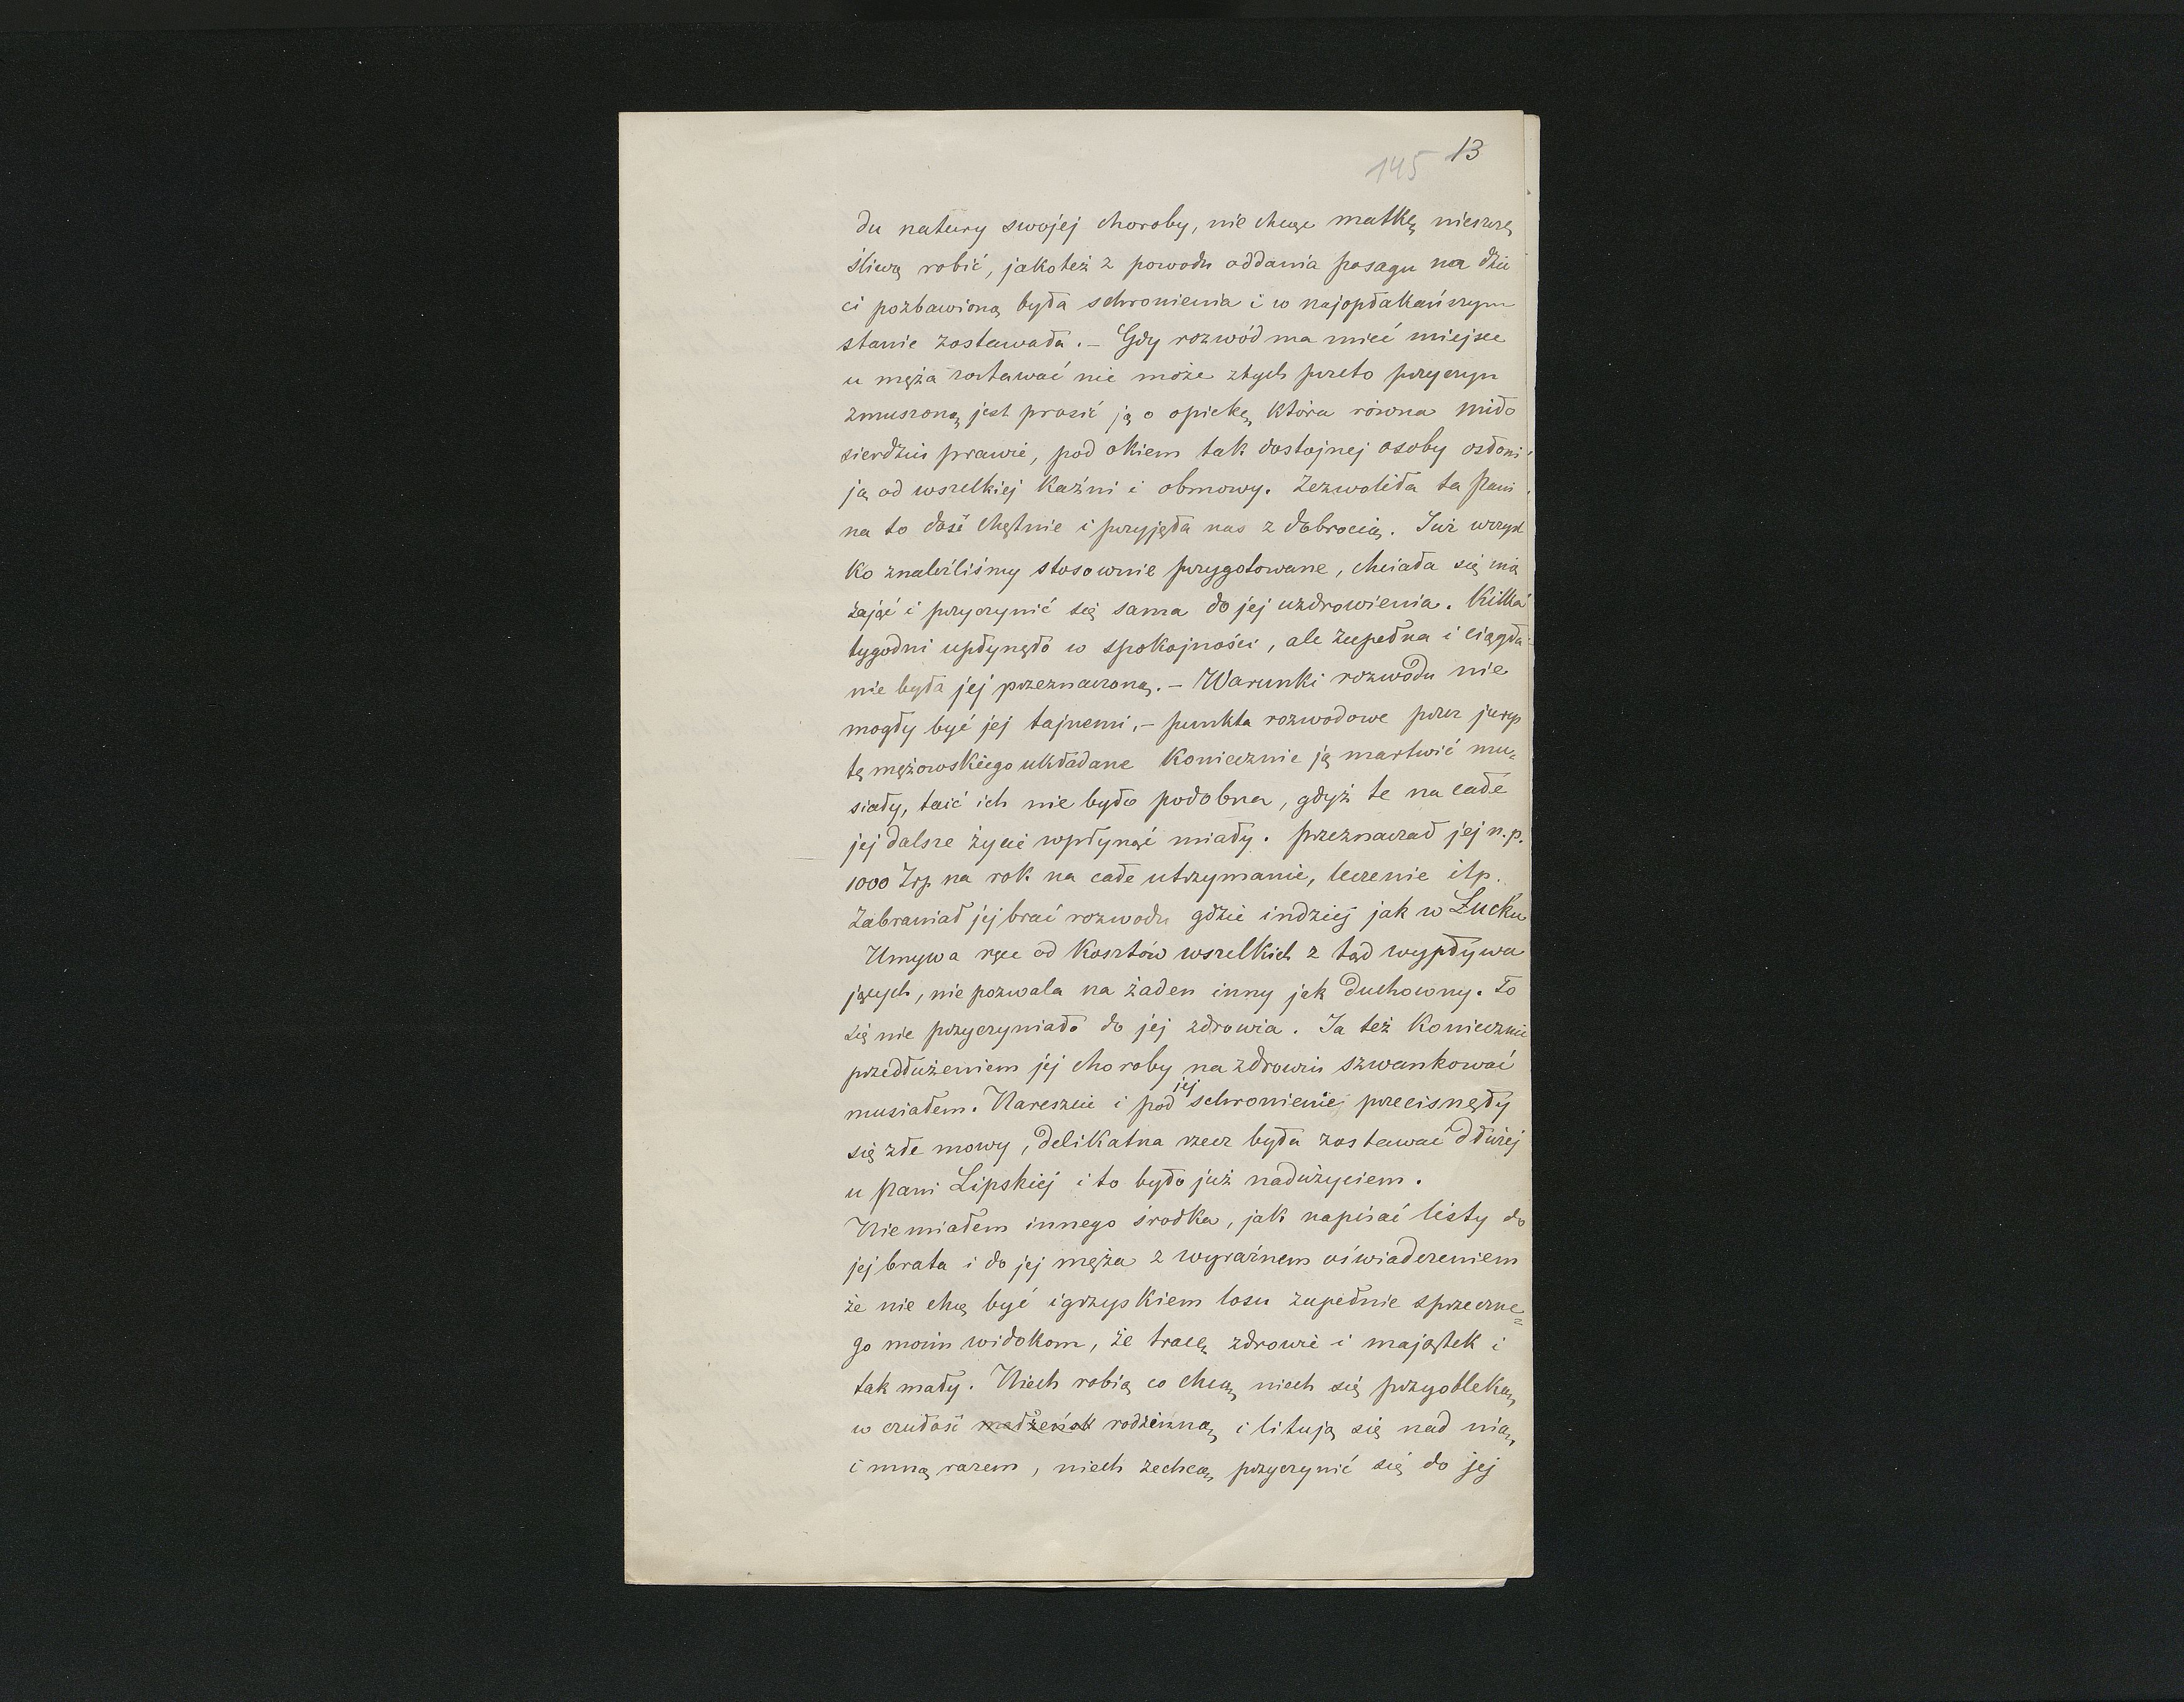 145 13
du natury swojej choroby, nie chcąc matkę nieszczę
śliwą robić, jakoteż z powodu oddania posagu na dzie
ci pozbawioną była schronienia i w najopłakańszym
stanie zostawała. — Gdy rozwód ma mieć miejsce
u męża zostawać nie może z tych przeto przyczyn
zmuszoną jest prosić ją o opiekę, która równa miło
sierdziu prawie, pod okiem tak dostojnej osoby osłoni
ją od wszelkiej kaźni i obmowy. Zezwoliła ta Pani
na to dość chętnie i przyjęła nas z dobrocią. Już wszyst
ko znaleźliśmy stosownie przygotowane, chciała się
zająć i przyczynić się sama do jej uzdrowienia. Kilka
tygodni upłynęło w spokojności, ale zupełna i ciągła
nie była jej przeznaczoną. — Warunki rozwodu nie
mogły być jej tajnemi, — punkta rozwodowe przez jurys
tę mężowskiego układane koniecznie ją martwić mu=
siały, taić ich nie było podobna, gdyż te na całe
jej dalsze życie wpłynąć miały. Przeznaczał jej n.p.
1000 Złp. na rok na całe utrzymanie, leczenie itp.
Zabraniał jej brać rozwodu gdzie indziej jak w Łucku
Umywa ręce od kosztów wszelkich z tąd wypływa
jących, nie pozwala na żaden inny jak duchowny. To
się nie przyczyniało do jej zdrowia. Ja też koniecznie
przedłużeniem jej choroby na zdrowiu szwankować
musiałem. Nareszcie i pod jej schronienie przecisnęły
się złe mowy, delikatna rzecz była zostawać dłużej
u Pani Lipskiej i to było już nadużyciem.
Nie miałem innego środka, jak napisać listy do
jej brata i do jej męża z wyraźnem oświadczeniem
że nie chcę być igrzyskiem losu zupełnie sprzeczne=
go moim widokom, że tracę zdrowie i majątek i
tak mały. Niech robią co chcą, niech się przyobleką
w czułość małżeńsk rodzinną, i litują się nad nią,
i mną razem, niech zechcą przyczynić się do jej